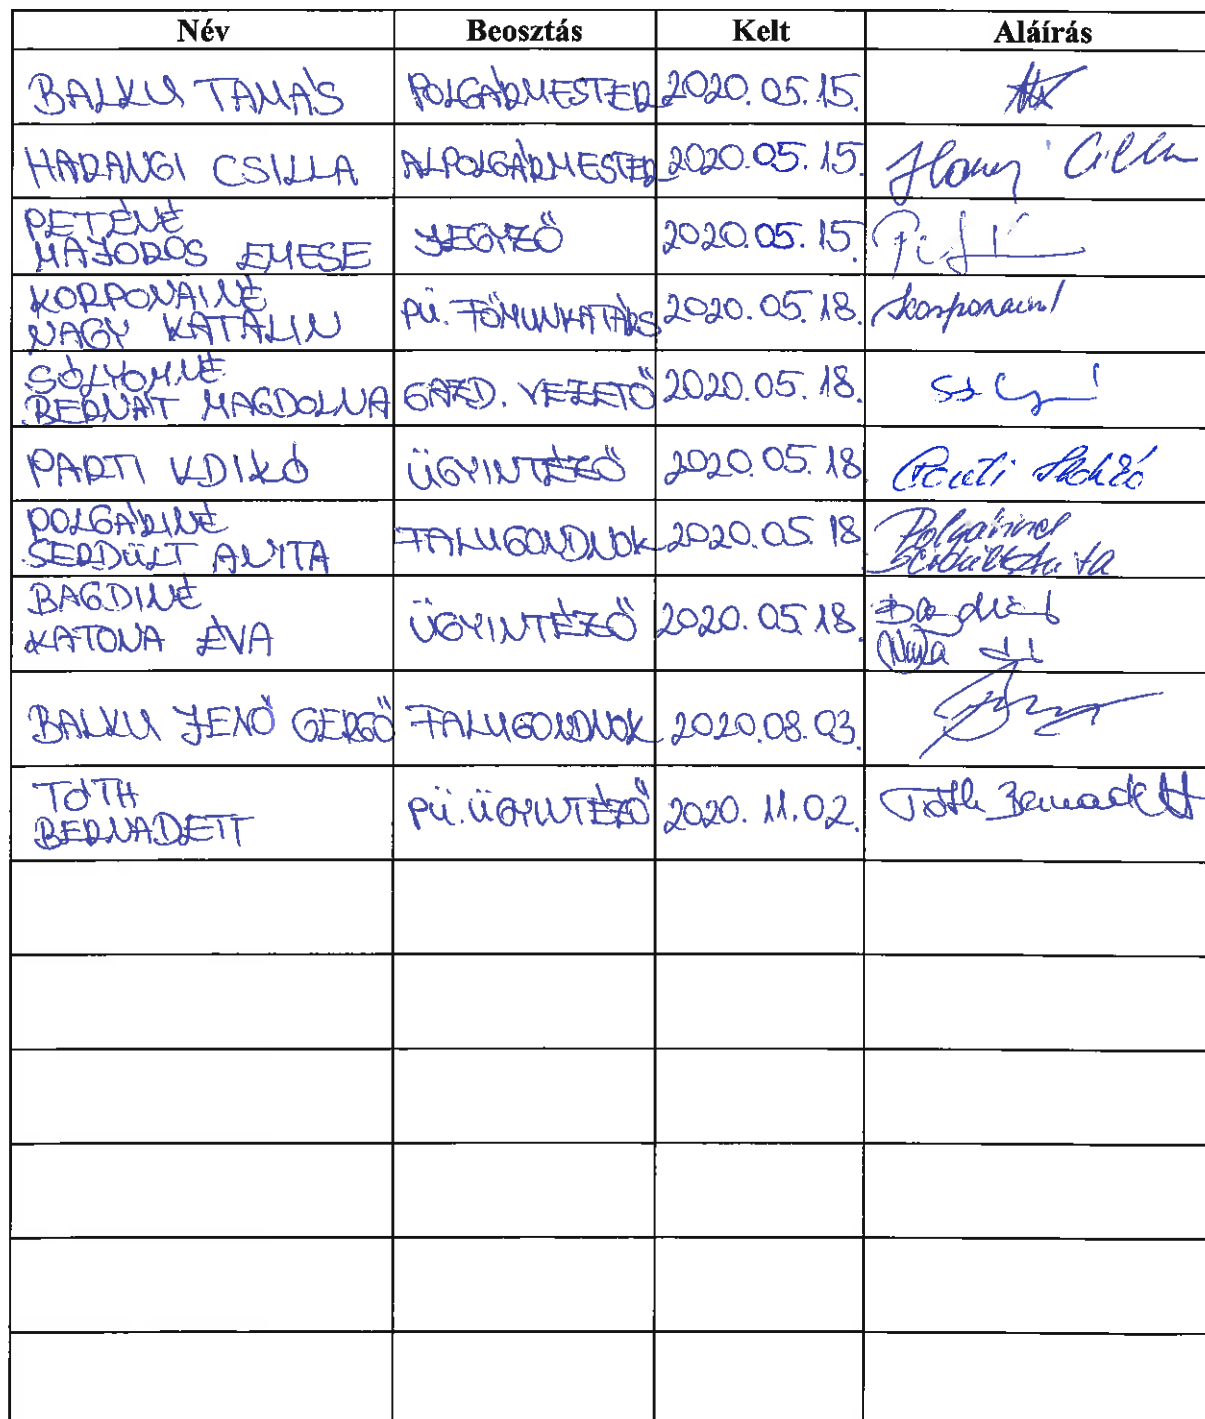 Név Beosztás Kelt Aláírás
BALKU TAMÁS POLGÁRMESTER 2020.05.15.
HARANGI CSILLA ALPOLGÁRMESTER 2020.05.15. Csilla
PETÉNÉ
MAJOROS EMESE JEGYZŐ 2020.05.15.
KORPONAINÉ
NAGY KATALIN PÜ. FŐMUNKATÁRS 2020.05.18. Korponainé
SÓLYOMNÉ
BERNÁT MAGDOLNA GAZD. VEZETŐ 2020.05.18.
PARTI ILDIKÓ ÜGYINTÉZŐ 2020.05.18 Parti Ildikó
POLGÁRINÉ
SERDÜLT ANITA FALUGONDNOK 2020.05.18 Polgáriné
Serdült Anita
BAGDINÉ
KATONA ÉVA ÜGYINTÉZŐ 2020.05.18. Bagdiné
BALKU JENŐ GERGŐ FALUGONDNOK 2020.08.03.
TÓTH
BERNADETT PÜ. ÜGYINTÉZŐ 2020.11.02. Tóth Bernadett